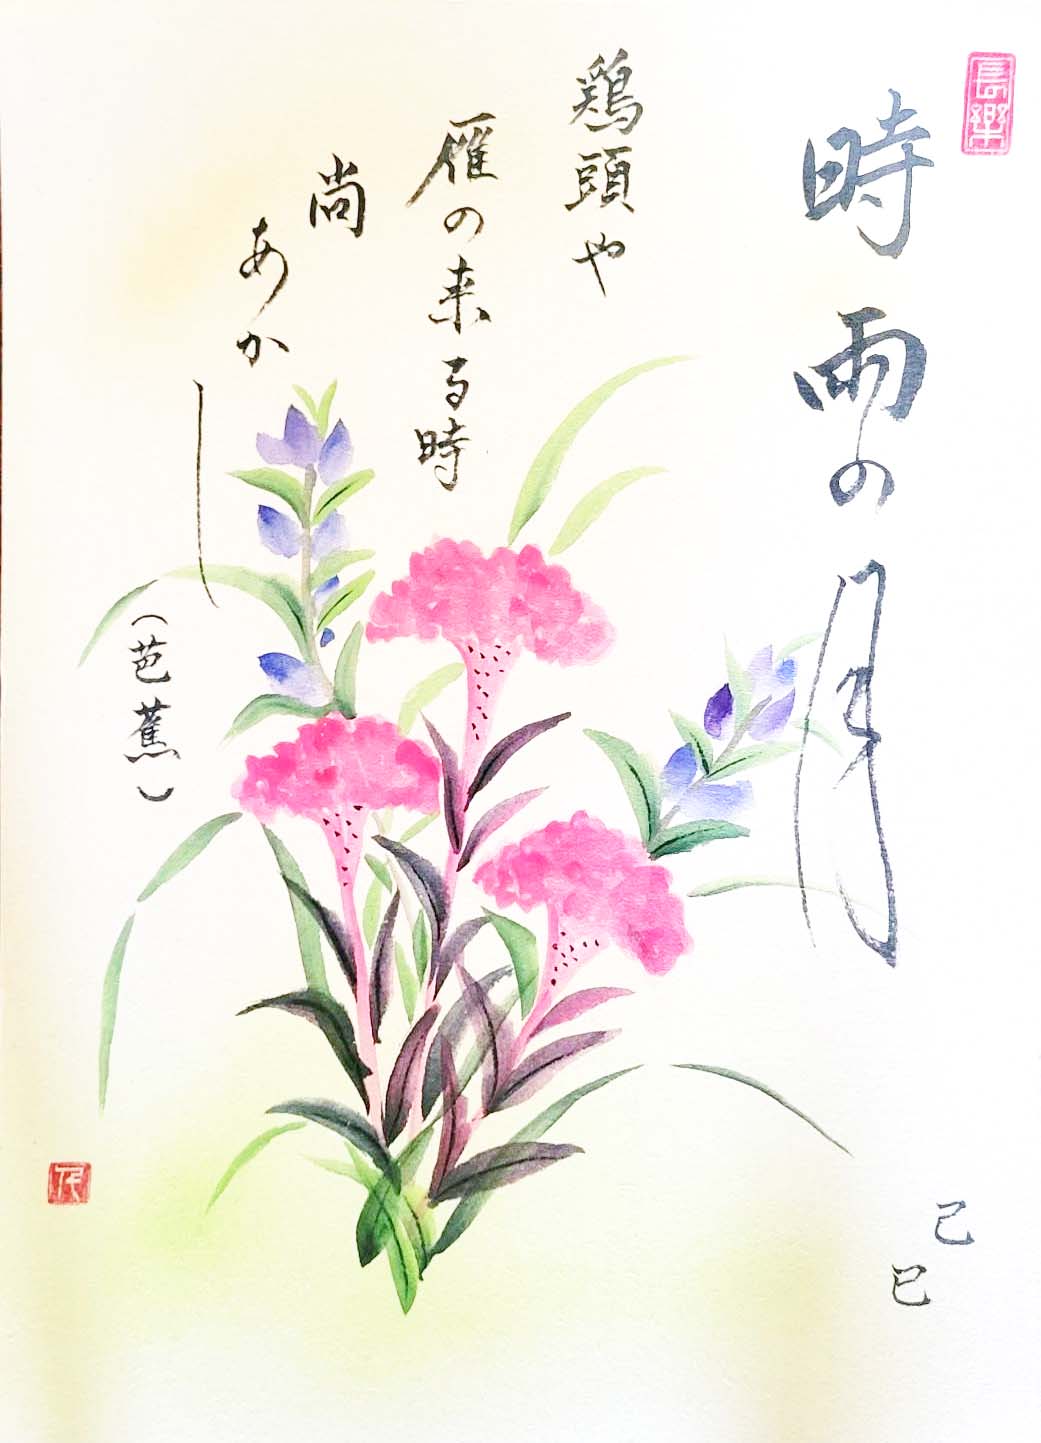 長樂
時雨の月
鶏頭や
雁の来る時
尚
あかし
(芭蕉)
己
巳